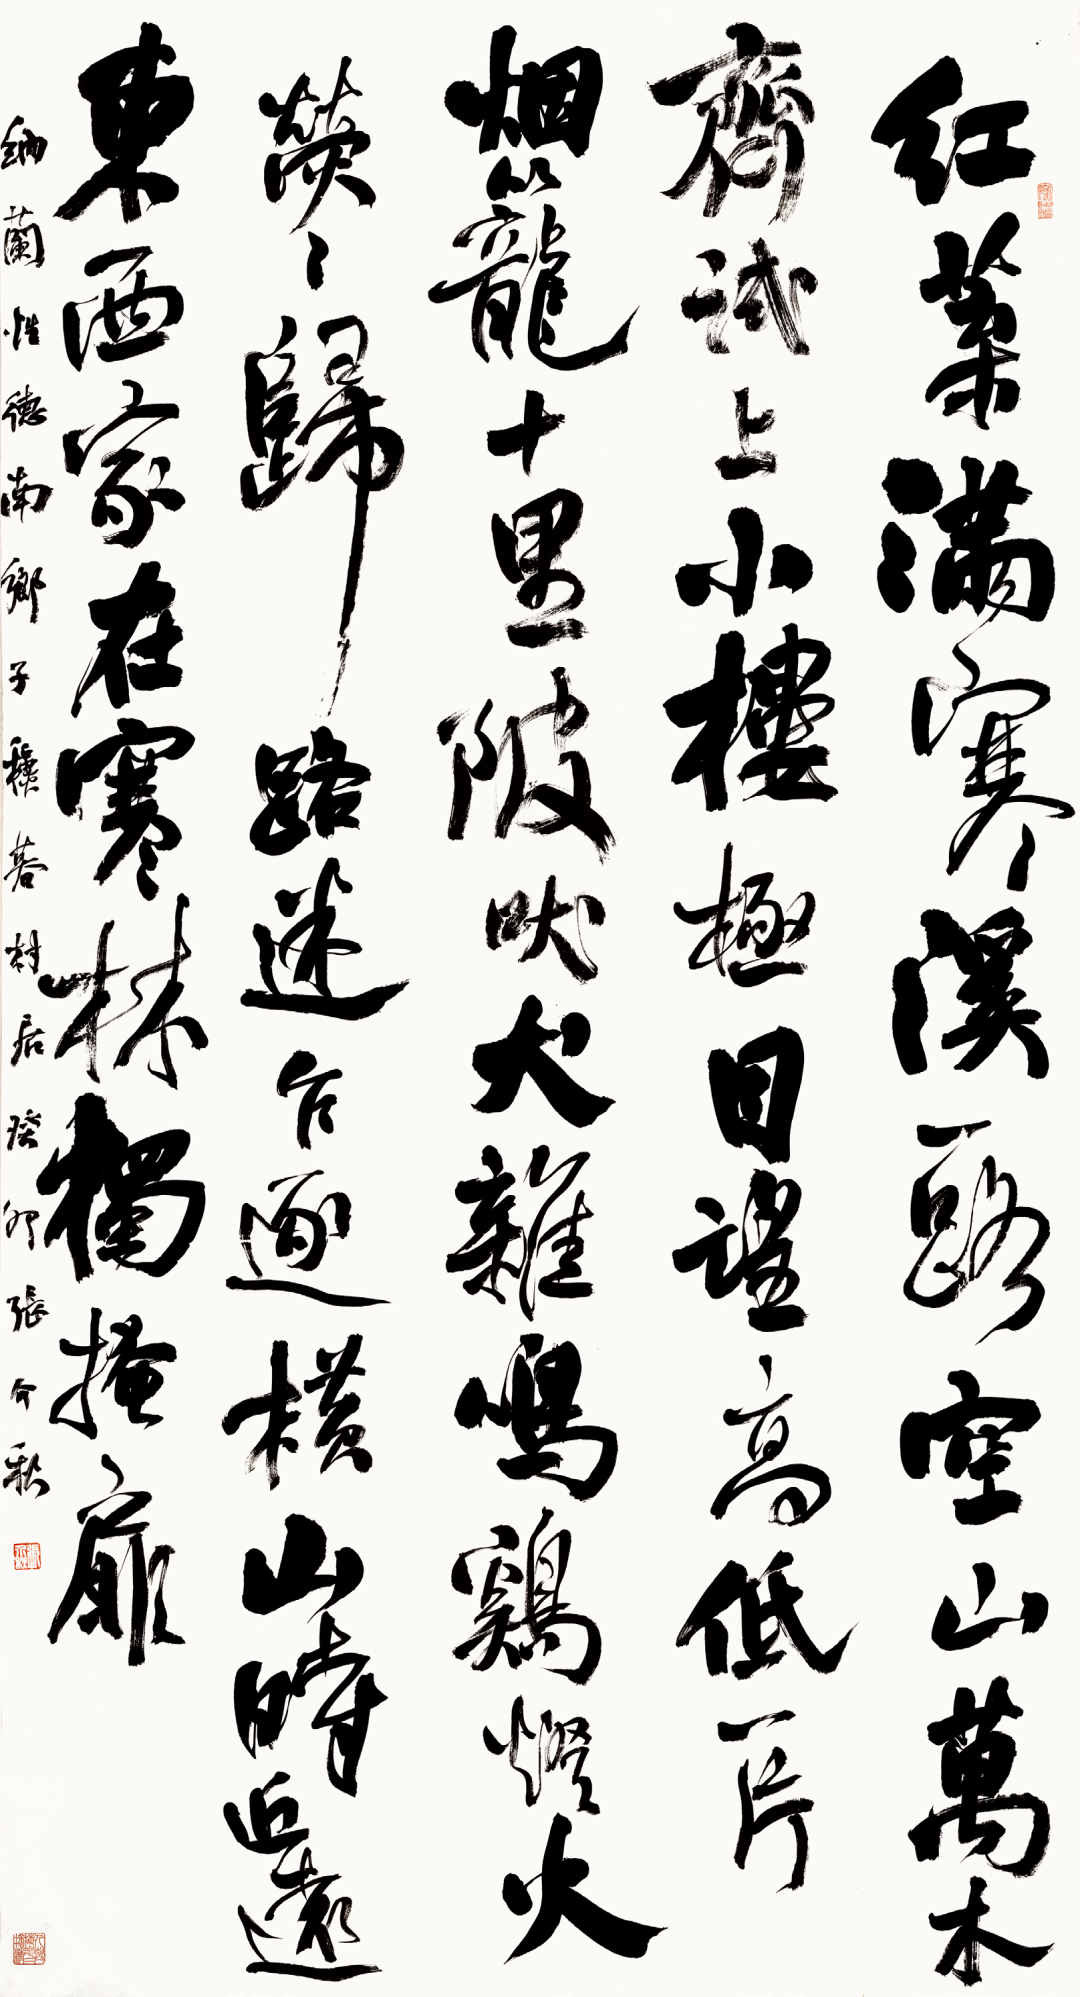 红葉满寒溪一路空山萬木
齊試上小樓極目望高低一片
烟籠十里陂吠犬雜鳴鷄燈火
熒〻歸路迷乍逐横山時近遠
東西家在寒林獨掩扉
納蘭性德南鄉子龝暮村居癸卯張令秋